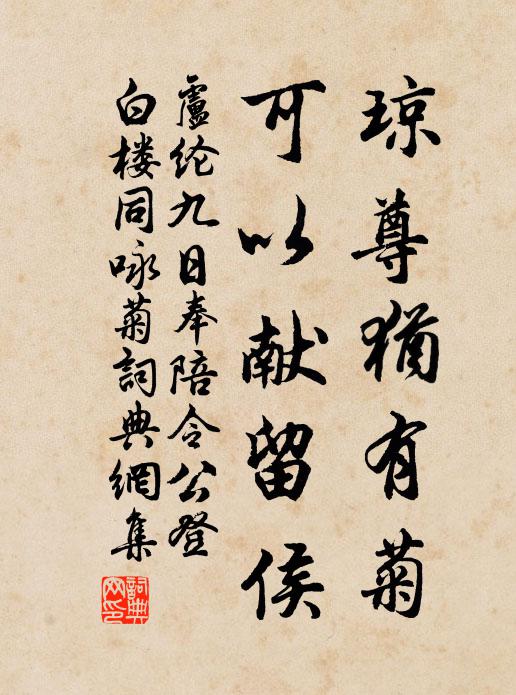 琼尊猶有菊
可以献留侯
盧纶九日奉陪令公登
白楼同咏菊詞典網集
詞典网印